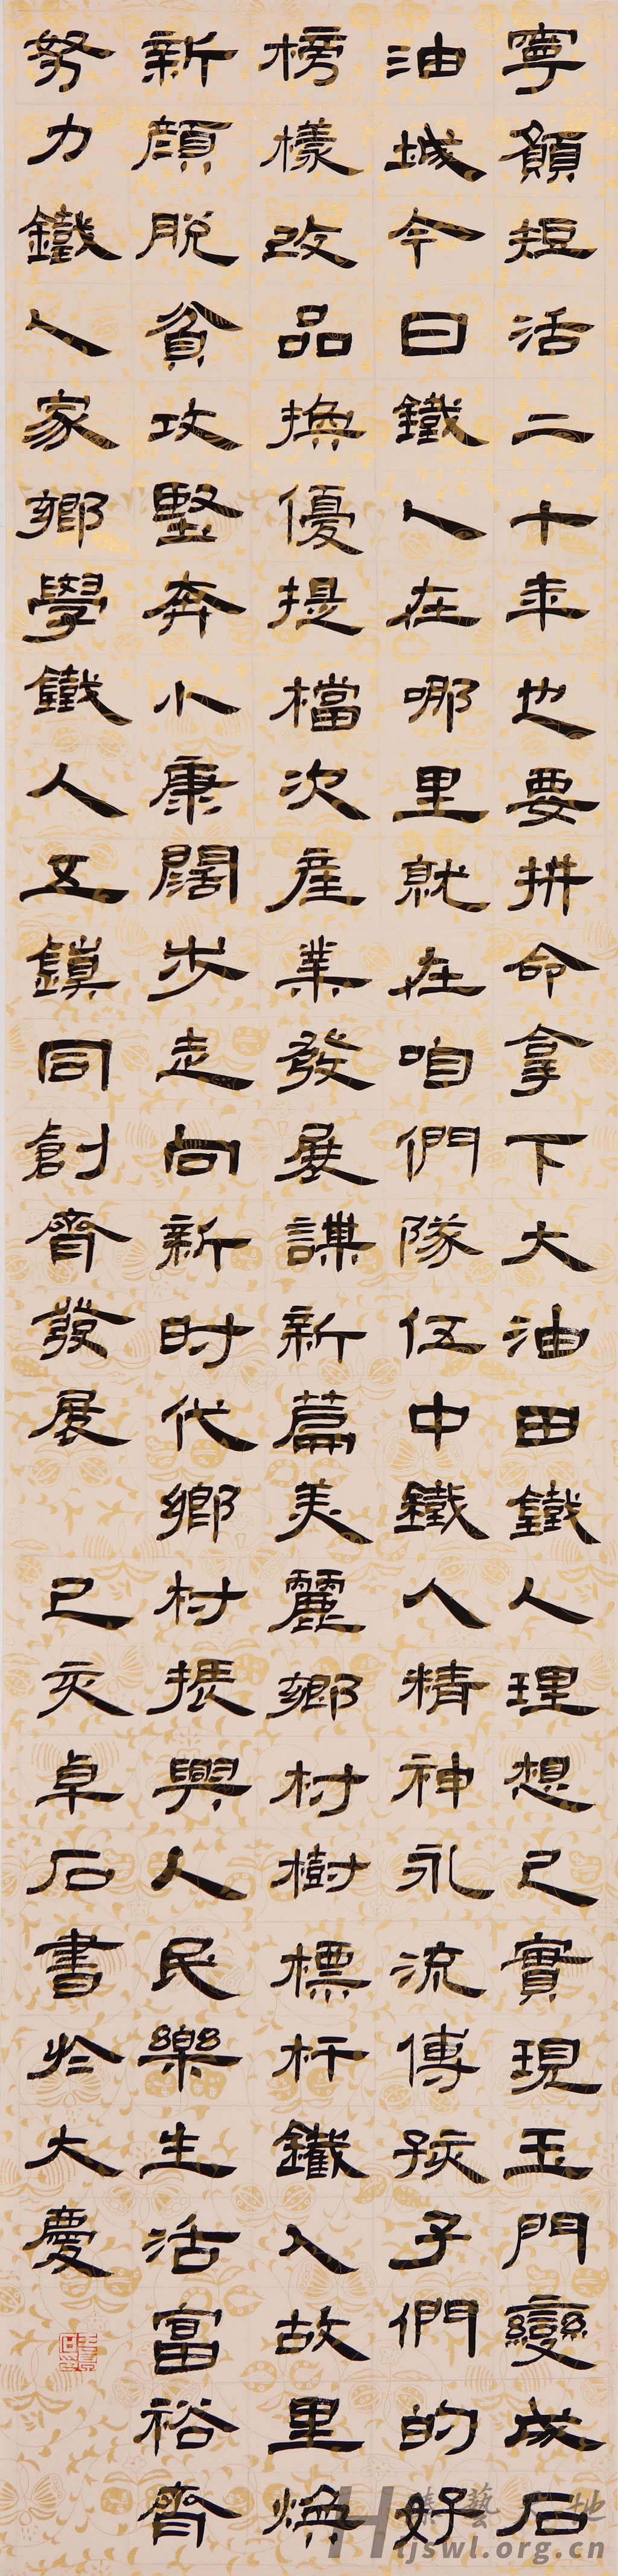 寧願短活二十年也要拼命拿下大油田鐵人理想已實現玉門變成石
油城今日鐵人在哪里就在咱們隊伍中鐵人精神永流傳孩子們的好
榜樣改品換優提檔次產業發展譜新篇美麗鄉村樹標杆鐵人故里煥
新顏脫貧攻堅奔小康闊步走向新时代鄉村振興人民樂生活富裕齊
努力鐵人家鄉學鐵人五鎮同創齊發展
己亥卓石書於大慶
tjswl.org.cn